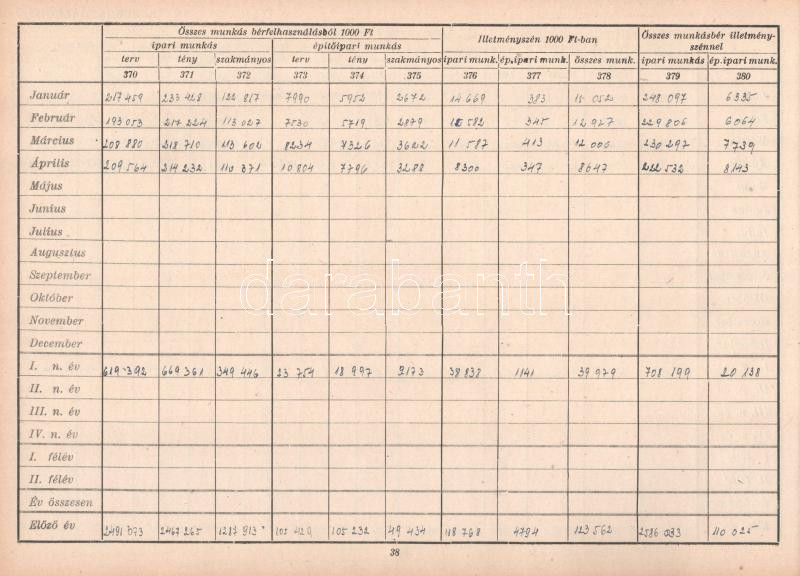 Összes munkás bérfelhasználásból 1000 Ft Illetményszén 1000 Ft-ban Összes munkásbér illetmény-
szénnel
ipari munkás építőipari munkás
terv tény szakmányos terv tény szakmányos ipari munk. ép.ipari munk. összes munk. ipari munkás ép.ipari munk.
370 371 372 373 374 375 376 377 378 379 380
Január 217 459 233 428 122 817 7990 5952 2672 14 669 383 15 052 248 097 6335
Február 193 053 217 224 113 027 7530 5719 2879 12 582 345 12 927 229 806 6064
Március 208 880 218 710 113 602 8234 7326 3622 11 587 413 12 000 230 297 7739
Április 209 564 214 232 110 371 10 804 7796 3288 8300 347 8647 222 532 8143
Május
Junius
Julius
Augusztus
Szeptember
Október
November
December
I. n. év 619 392 669 361 349 446 23 754 18 997 9173 38 838 1141 39 979 708 199 20 138
II. n. év
III. n. év
IV. n. év
I. félév
II. félév
Év összesen
Előző év 2491 073 2467 265 1287 913 105 429 105 232 49 434 118 768 4794 123 562 2586 033 110 025
38
darabanth